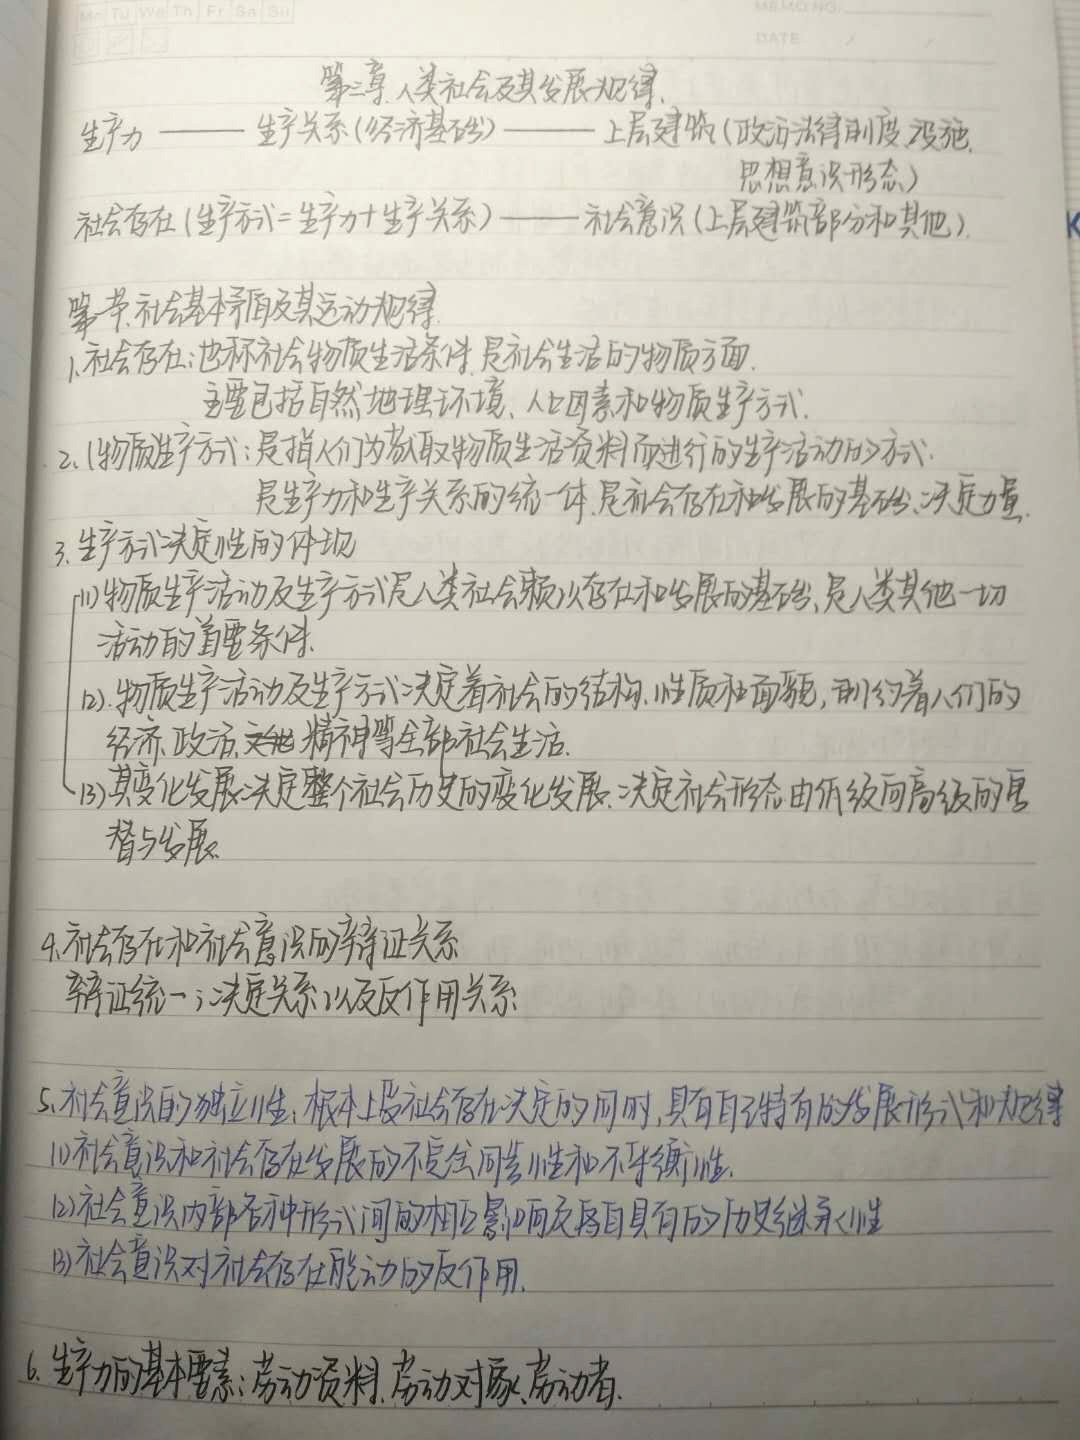 Mo Tu We Th Fr Sa Su
MEMO NO.
DATE / /
第三章.人类社会及其发展规律.
生产力 —— 生产关系(经济基础) —— 上层建筑(政治法律制度、设施.
思想意识形态)
社会存在(生产方式=生产力+生产关系) —— 社会意识(上层建筑部分和其他).
第一节.社会基本矛盾及其运动规律.
1、社会存在:也称社会物质生活条件.是社会生活的物质方面.
主要包括自然地理环境、人口因素和物质生产方式.
2、(物质)生产方式:是指人们为获取物质生活资料而进行的生产活动的方式.
是生产力和生产关系的统一体.是社会存在和发展的基础、决定力量.
3.生产方式决定性的体现
(1)物质生产活动及生产方式是人类社会赖以存在和发展的基础、是人类其他一切
活动的首要条件.
(2).物质生产活动及生产方式决定着社会的结构、性质和面貌,制约着人们的
经济、政治、精神等全部社会生活.
(3)其变化发展决定整个社会历史的变化发展.决定社会形态由低级向高级的更
替与发展.
4.社会存在和社会意识的辩证关系
辩证统一;决定关系以及反作用关系
5、社会意识的独立性:根本上受社会存在决定的同时,具有自己特有的发展形式和规律
(1)社会意识和社会存在发展的不完全同步性和不平衡性.
(2)社会意识内部各种形式间的相互影响及各自具有的历史继承性
(3)社会意识对社会存在能动的反作用.
6.生产力的基本要素:劳动资料、劳动对象、劳动者.
K